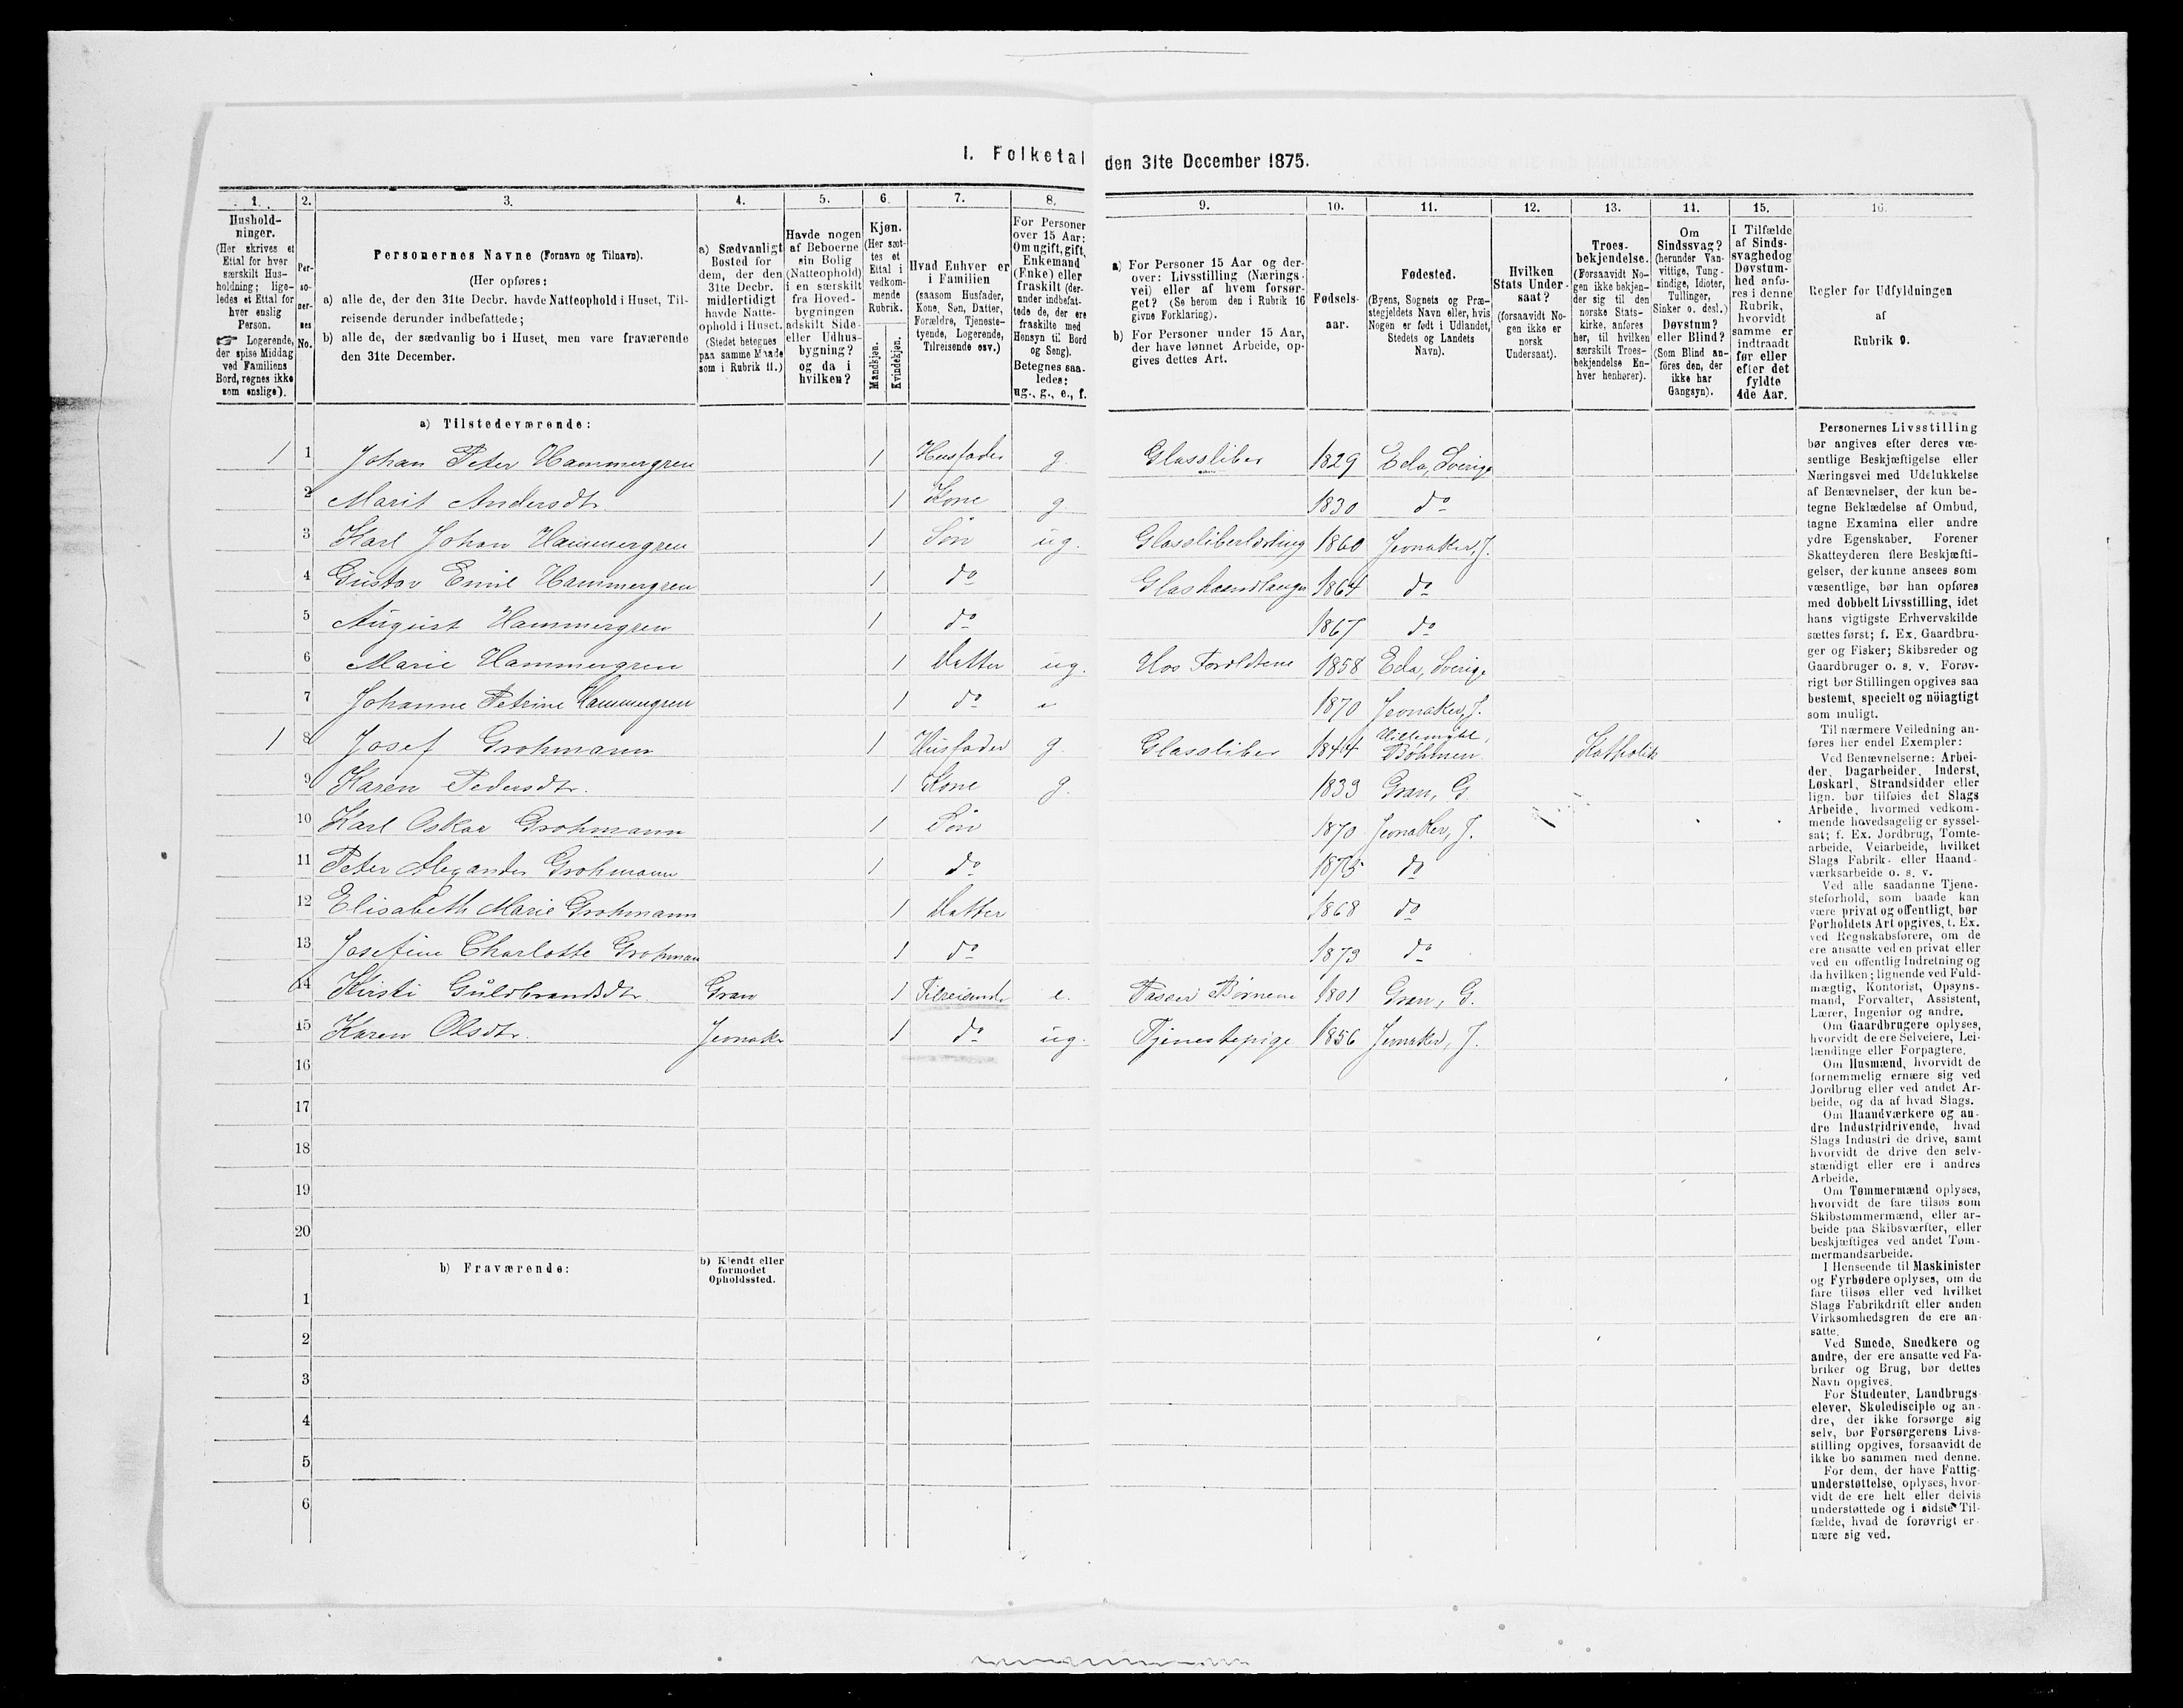 I. Folketal den 31te December 1875.
1. 2. 3. 4. 5. 6. 7. 8. 9. 10. 11. 12. 13. 14. 15. 16.
Hushold-
ninger.
(Her skrives et
Ettal for hver
særskilt Hus-
holdning; lige-
ledes et Ettal for
hver enslig
Person.
☞ Logerende,
der spise Middag
ved Familiens
Bord, regnes ikke
som enslige).
Per-
so-
ner-
nes
No.
Personernes Navne (Fornavn og Tilnavn).
(Her opføres:
a) alle de, der den 31te Decbr. havde Natteophold i Huset, Til-
reisende derunder indbefattede;
b) alle de, der sædvanlig bo i Huset, men vare fraværende
den 31te December.
a) Sædvanligt
Bosted for
dem, der den
31te Decbr.
midlertidigt
havde Natte-
ophold i Huset.
(Stedet betegnes
paa samme Maade
som i Rubrik 11.)
Havde nogen
af Beboerne
sin Bolig
(Natteophold)
i en særskilt
fra Hoved-
bygningen
adskilt Side-
eller Udhus-
bygning?
og da i
hvilken?
Kjøn.
(Her sæt-
tes et
Ettal i
vedkom-
mende
Rubrik.
Mandkjøn.
Kvindekjøn.
Hvad Enhver er
i Familien
(saasom Husfader,
Kone, Søn, Datter,
Forældre, Tjeneste-
tyende, Logerende,
Tilreisende osv.)
For Personer
over 15 Aar:
Om ugift, gift,
Enkemand
(Enke) eller
fraskilt (der-
under indbefat-
tede de, der ere
fraskilte med
Hensyn til Bord
og Seng).
Betegnes saa-
ledes:
ug., g., e., f.
a) For Personer 15 Aar og der-
over: Livsstilling (Nærings-
vei) eller af hvem forsør-
get? (Se herom den i Rubrik 16
givne Forklaring).
b) For Personer under 15 Aar,
der have lønnet Arbeide, op-
gives dettes Art.
Fødsels-
aar.
Fødested.
(Byens, Sognets og Præ-
stegjeldets Navn eller, hvis
Nogen er født i Udlandet,
Stedets og Landets
Navn).
Hvilken
Stats Under-
saat?
(forsaavidt No-
gen ikke er
norsk
Undersaat).
Troes-
bekjendelse.
(Forsaavidt No-
gen ikke bekjen-
der sig til den
norske Stats-
kirke, anføres
her, til hvilken
særskilt Troes-
bekjendelse En-
hver henhører).
Om
Sindssvag?
(herunder Van-
vittige, Tung-
sindige, Idioter,
Tullinger,
Sinker o. desl.)
Døvstum?
eller Blind?
(Som Blind an-
føres den, der
ikke har
Gangsyn).
I Tilfælde
af Sinds-
svaghed og
Døvstum-
hed anfø-
res i denne
Rubrik,
hvorvidt
samme er
indtraadt
før eller
efter det
fyldte
4de Aar.
Regler for Udfyldningen
af
Rubrik 9.
a) Tilstedeværende:
1 1 Johan Peter Hammergren 1 Husfader g. Glassliber 1829 Eda, Sverige
2 Marit Andersdtr. 1 Kone g. 1830 do
3 Karl Johan Hammergren 1 Søn ug. Glassliberlærling 1860 Jevnaker, J.
4 Gustav Emil Hammergren 1 do Glashaandlanger 1864 do
5 August Hammergren 1 do 1867 do
6 Marie Hammergren 1 Datter ug. Hos Forældrene 1858 Eda, Sverige
7 Johanne Petrine Hammergren 1 do 1870 Jevnaker, J.
1 8 Josef Grohmann 1 Husfader g. Glassliber 1844 Böhmen Katholik
9 Karen Pedersdtr. 1 Kone g. 1833 Gran, G.
10 Karl Oskar Grohmann 1 Søn 1870 Jevnaker, J.
11 Peter Alexander Grohmann 1 do 1875 do
12 Elisabeth Marie Grohmann 1 Datter 1868 do
13 Josefine Charlotte Grohmann 1 do 1873 do
14 Kirsti Guldbrandsdtr. Gran 1 Tilreisende e. Passer Børnene 1801 Gran, G.
15 Karen Olsdtr. Jevnaker 1 do ug. Tjenestepige 1856 Jevnaker, J.
16
17
18
19
20
b) Fraværende:
b) Kjendt eller
formodet
Opholdssted.
1
2
3
4
5
6
Personernes Livsstilling
bør angives efter deres væ-
sentlige Beskjæftigelse eller
Næringsvei med Udelukkelse
af Benævnelser, der kun be-
tegne Beklædelse af Ombud,
tagne Examina eller andre
ydre Egenskaber. Forener
Skatteyderen flere Beskjæfti-
gelser, der kunne ansees som
væsentlige, bør han opføres
med dobbelt Livsstilling, idet
hans vigtigste Erhvervskilde
sættes først; f. Ex. Gaardbru-
ger og Fisker; Skibsreder og
Gaardbruger o. s. v. Forøv-
rigt bør Stillingen opgives saa
bestemt, specielt og nöiagtigt
som muligt.
Til nærmere Veiledning an-
føres her endel Exempler:
Ved Benævnelserne: Arbei-
der, Dagarbeider, Inderst,
Løskarl, Strandsidder eller
lign. bør tilføies det Slags
Arbeide, hvormed vedkom-
mende hovedsagelig er syssel-
sat; f. Ex. Jordbrug, Tomte-
arbeide, Veiarbeide, hvilket
Slags Fabrik- eller Haand-
værksarbeide o. s. v.
Ved alle saadanne Tjene-
steforhold, som baade kan
være privat og offentligt, bør
Forholdets Art opgives, t. Ex.
ved Regnskabsførere, om de
ere ansatte ved en privat eller
ved en offentlig Indretning og
da hvilken; lignende ved Fuld-
mægtig, Kontorist, Opsyns-
mand, Forvalter, Assistent,
Lærer, Ingeniør og andre.
Om Gaardbrugere oplyses,
hvorvidt de ere Selveiere, Lei-
lændinge eller Forpagtere.
Om Husmænd, hvorvidt de
fornemmelig ernære sig ved
Jordbrug eller ved andet Ar-
beide, og da af hvad Slags.
Om Haandværkere og an-
dre Industridrivende, hvad
Slags Industri de drive, samt
hvorvidt de drive den selv-
stændigt eller ere i andres
Arbeide.
Om Tømmermænd oplyses,
hvorvidt de fare tilsøs som
Skibstømmermænd, eller ar-
beide paa Skibsværfter, eller
beskjæftiges ved andet Tøm-
mermandsarbeide.
I Henseende til Maskinister
og Fyrbødere oplyses, om de
fare tilsøs eller ved hvilket
Slags Fabrikdrift eller anden
Virksomhedsgren de ere an-
satte.
Ved Smede, Snedkere og
andre, der ere ansatte ved Fa-
briker og Brug, bør dettes
Navn opgives.
For Studenter, Landbrugs-
elever, Skoledisciple og an-
dre, der ikke forsørge sig
selv, bør Forsørgerens Livs-
stilling opgives, forsaavidt de
ikke bo sammen med denne.
For dem, der have Fattig-
understøttelse, oplyses, hvor-
vidt de ere helt eller delvis
understøttede og i sidste Til-
fælde, hvad de forøvrigt er-
nære sig ved.